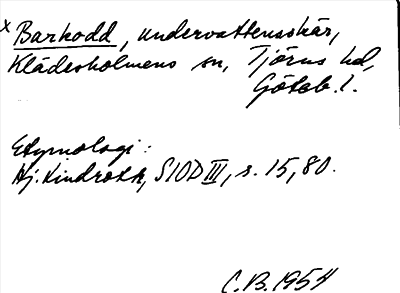 x Barkodd, undervattensskär,
Klädesholmens sn, Tjörns hd,
Göteb. l.
Etymologi:
Hj. Lindroth, SIOD III, s. 15, 80.
C.B. 1954